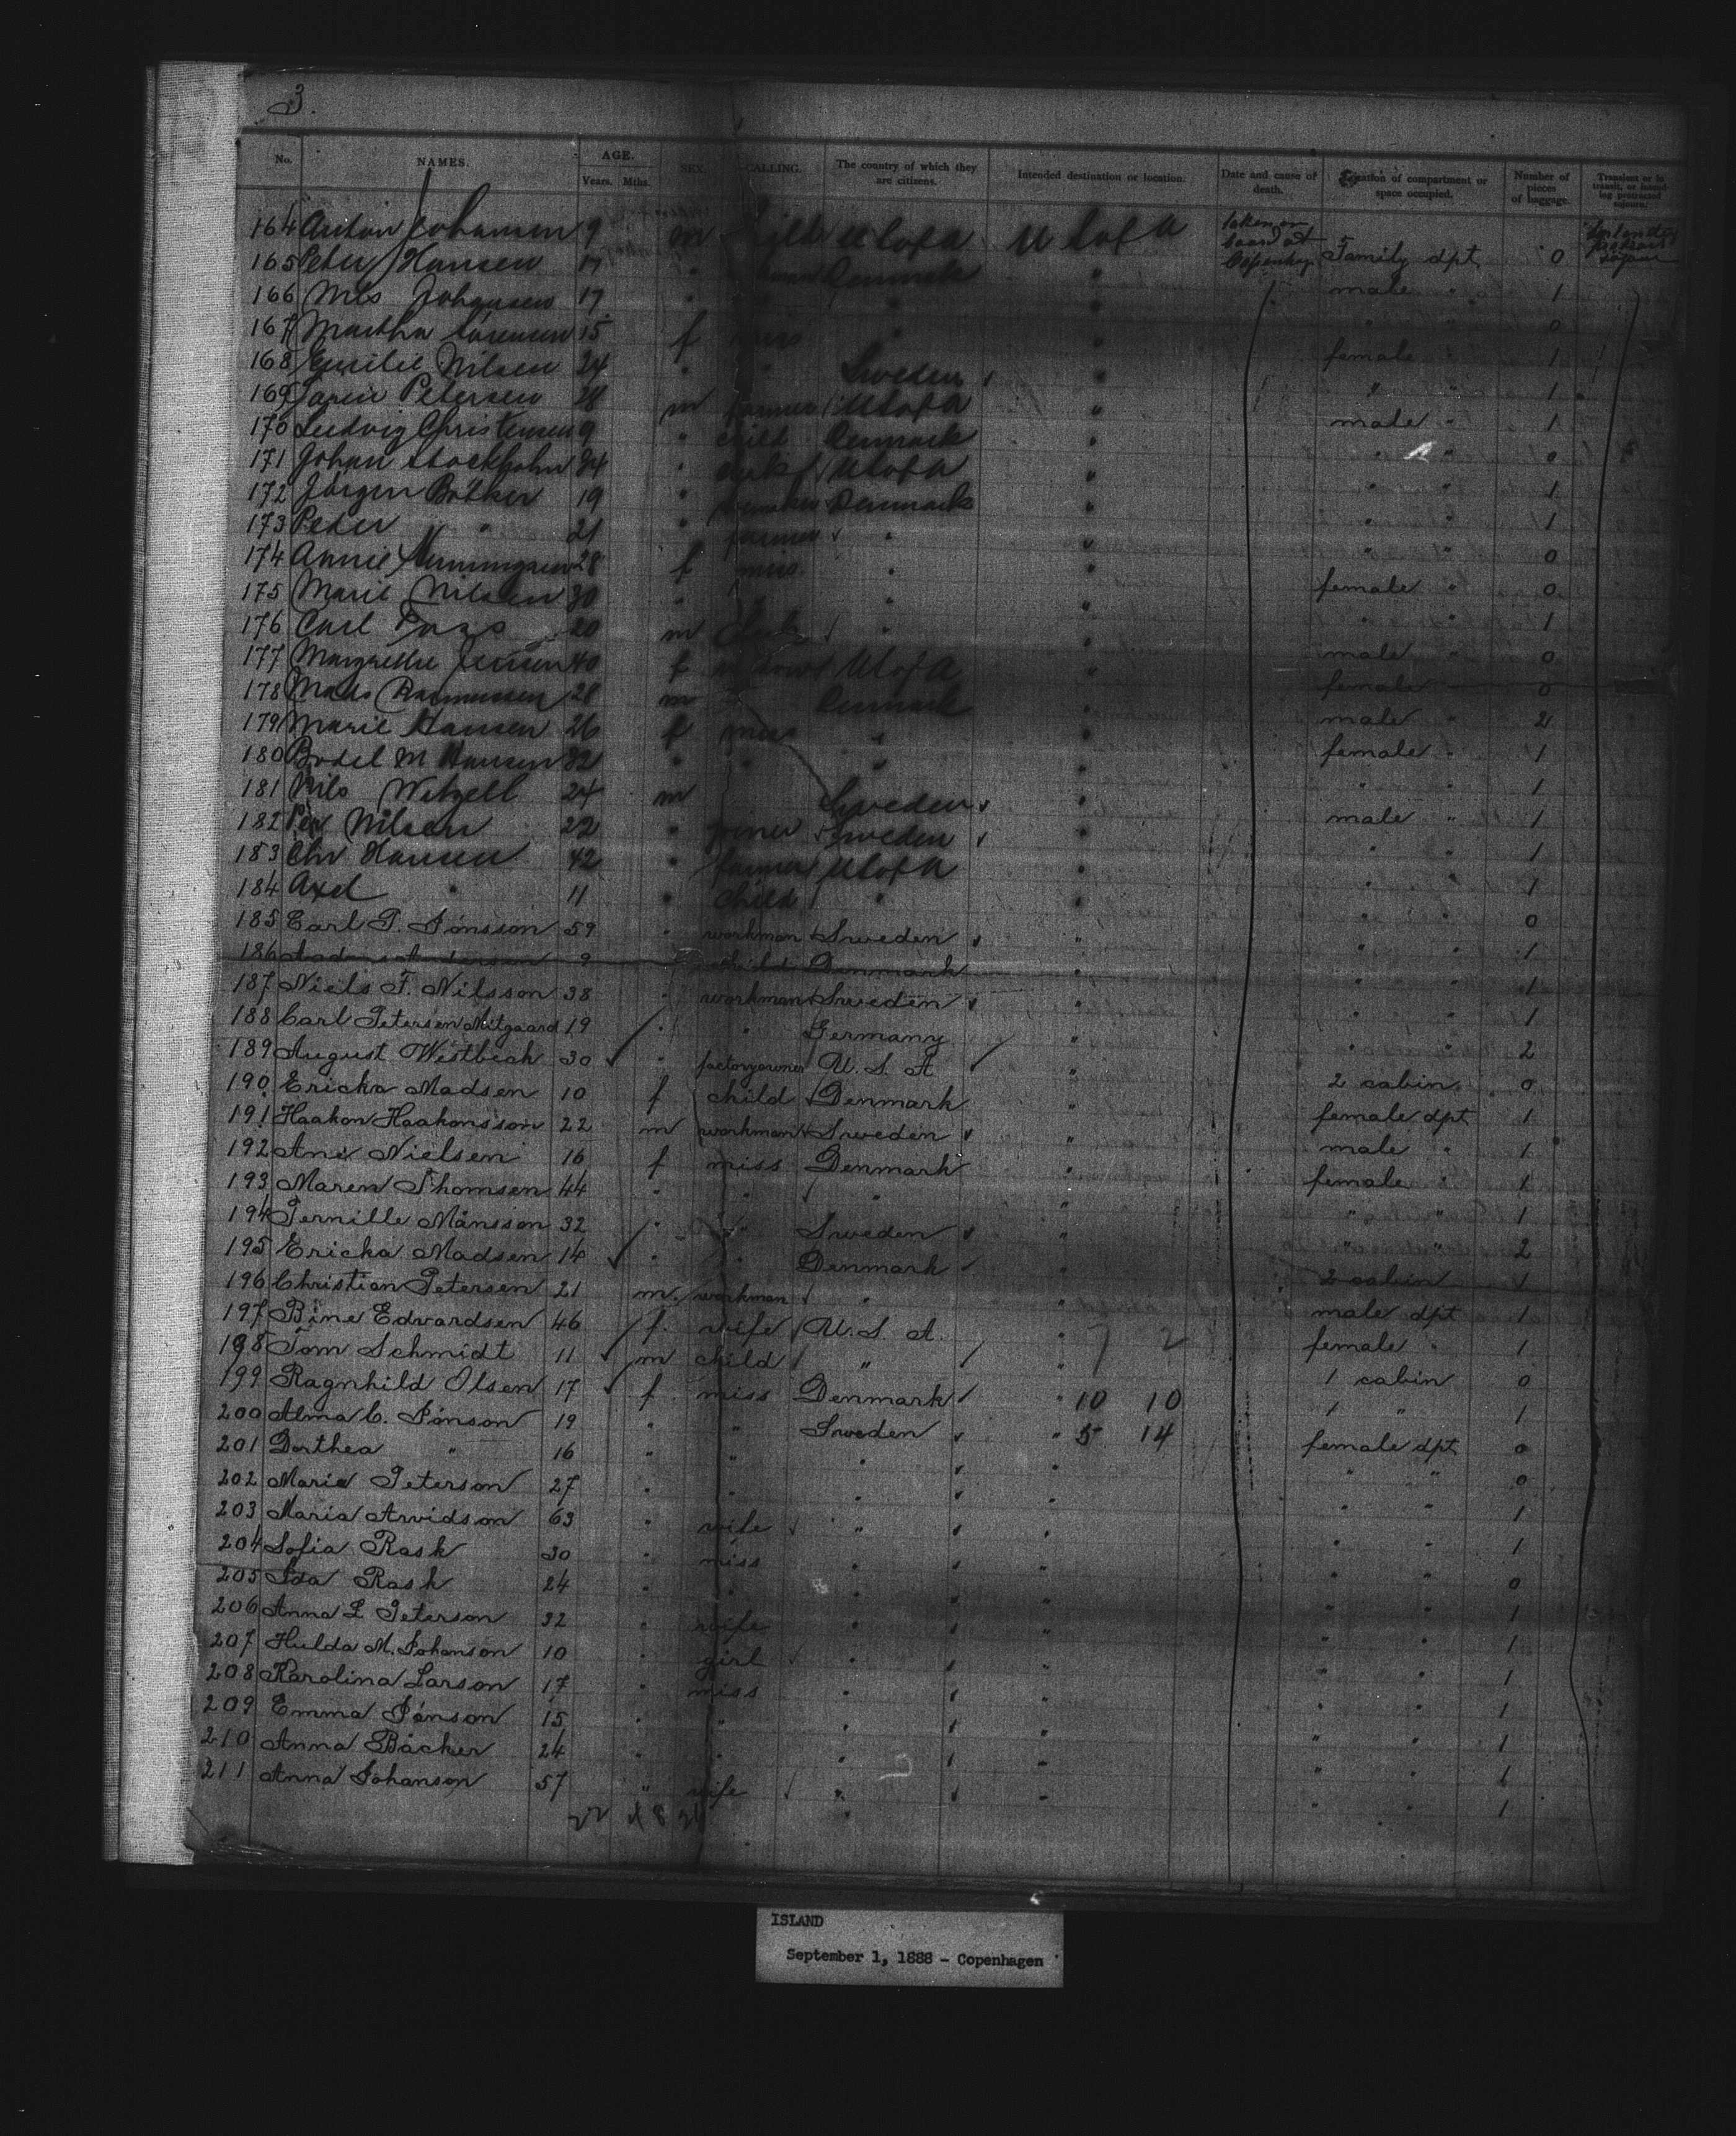 3.
No. NAMES. AGE. Years. Mths. SEX. CALLING. The country of which they are citizens. Intended destination or location. Date and cause of death. Location of compartment or space occupied. Number of pieces of luggage. Transient or in transit, or intending protracted sojourn.
164 Anton Johansen 9 m child U S of A U S of A taken on board at Copenhag. Family dpt 0
165 Peter Hansen 17 " Denmark " male " 1
166 Nils Johansen 17 " " " " " 0
167 Martha Sörensen 15 f miss " " female " 1
168 Emilie Nilsen 24 " " Sweden " " " 1
169 Petersen 28 m farmer U S of A " male " 1
170 Ludvig Christensen 9 " child Denmark " " " 0
171 Johan Stockholm 34 " U S of A " " " 1
172 Jörgen Bötker 19 " Denmark " " " 1
173 Peter " 21 " farmer " " " " 0
174 Annie Hemmingsen 28 f miss " " female " 0
175 Marie Nilsen 30 " " " " " " 1
176 Carl 20 m " " male " 0
177 Margrethe Jensen 40 f U S of A " female 0
178 Mads Rasmussen 28 m Denmark " male " 2
179 Marie Hansen 26 f miss " " female " 1
180 Bodel M Hansen 32 " " " " " " 1
181 Nils Wetzell 24 m Sweden " male " 1
182 Per Nilsen 22 " joiner Sweden " " " 1
183 Chr Hansen 42 " farmer U S of A " " " 1
184 Axel " 11 " child " " " " 0
185 Carl P. Jönsson 59 " workman Sweden " " " 1
186 Anders Andersen 9 child Denmark " " " 1
187 Niels F. Nilsson 38 " workman Sweden " " " 1
188 Carl Petersen Mitgaard 19 " " Germany " " " 2
189 August Westbeck 30 " factoryowner U. S. A " 2 cabin 0
190 Ericka Madsen 10 f child Denmark " female dpt 1
191 Haakon Haakonsson 22 m workman Sweden " male " 1
192 Ane Nielsen 16 f miss Denmark " female " 1
193 Maren Thomsen 44 " " " " " " 1
194 Pernille Månsson 32 " " Sweden " " " 2
195 Ericka Madsen 14 " " Denmark " 2 cabin 1
196 Christian Petersen 21 m. workman " " male dpt 1
197 Bine Edvardsen 46 f. wife U. S. A. " 7 2 female " 1
198 Tom Schmidt 11 m child " " 1 cabin 0
199 Ragnhild Olsen 17 f. miss Denmark " 10 10 1 " 1
200 Alma C. Jönson 19 " " Sweden " 5 14 female dpt 0
201 Dorthea " 16 " " " " " " 0
202 Maria Peterson 27 " " " " " " 1
203 Maria Arvidson 63 " wife " " " " 1
204 Sofia Rask 30 " miss " " " " 0
205 Ida Rask 24 " " " " " " 1
206 Anna L Peterson 32 " wife " " " " 1
207 Hulda M. Johanson 10 " girl " " " " 1
208 Karolina Larson 17 " miss " " " " 1
209 Emma Jönson 15 " " " " " " 1
210 Anna Bäcker 24 " " " " " " 1
211 Anna Johanson 57 " wife " " " " 1
ISLAND
September 1, 1888 - Copenhagen